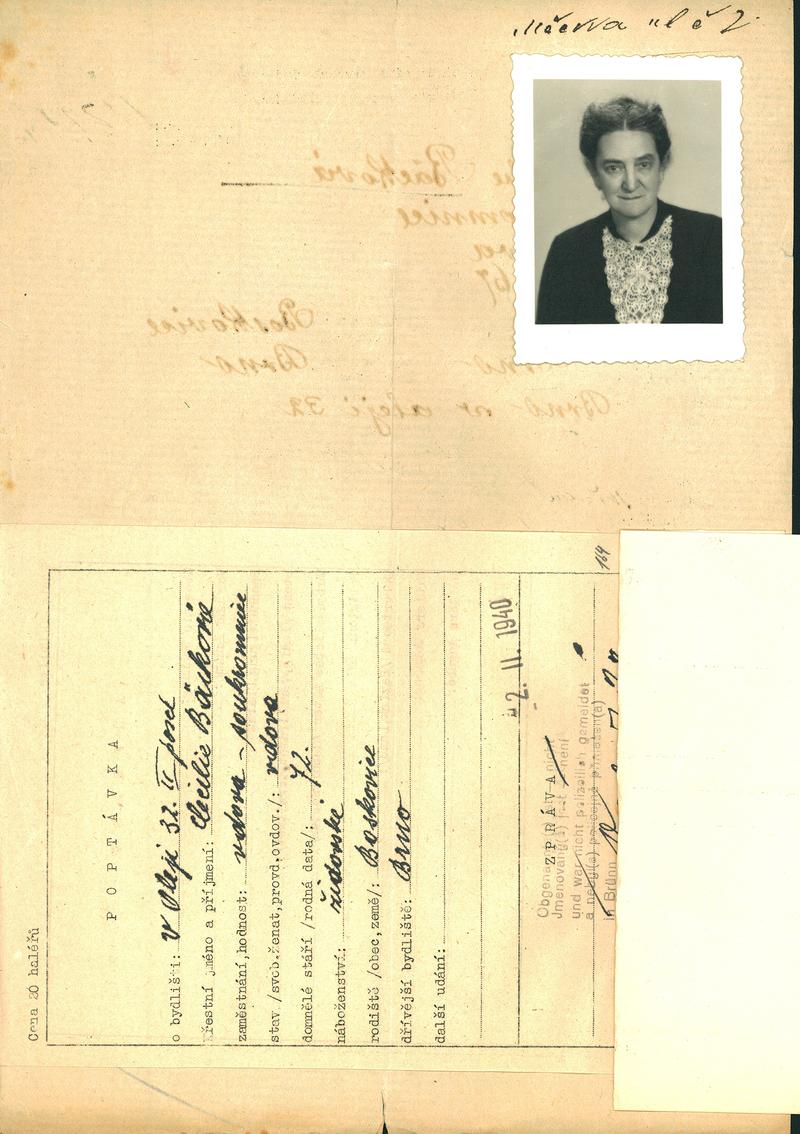 Cena 20 haléřů
POPTÁVKA
o bydlišti: v Aleji 32. II posch
křestní jméno a příjmení: Cecilie Bäcková
zaměstnání,hodnost: vdova - soukromnice
stav /svob.ženat,provd.ovdov./: vdova
domnělé stáří /rodná data/: 72.
náboženství: židovské
rodiště /obec,země/: Boskovice
dřívější bydliště: Brno
další udání:
2. 11. 1940
164
ZPRÁVA
Jmenovaný(a) není
und war nicht polizeilich gemeldet
a nebyl(a) policejně přihlášen(a)
in Brünn
Bäcková
Boskovice
Brno
Brno v aleji 32